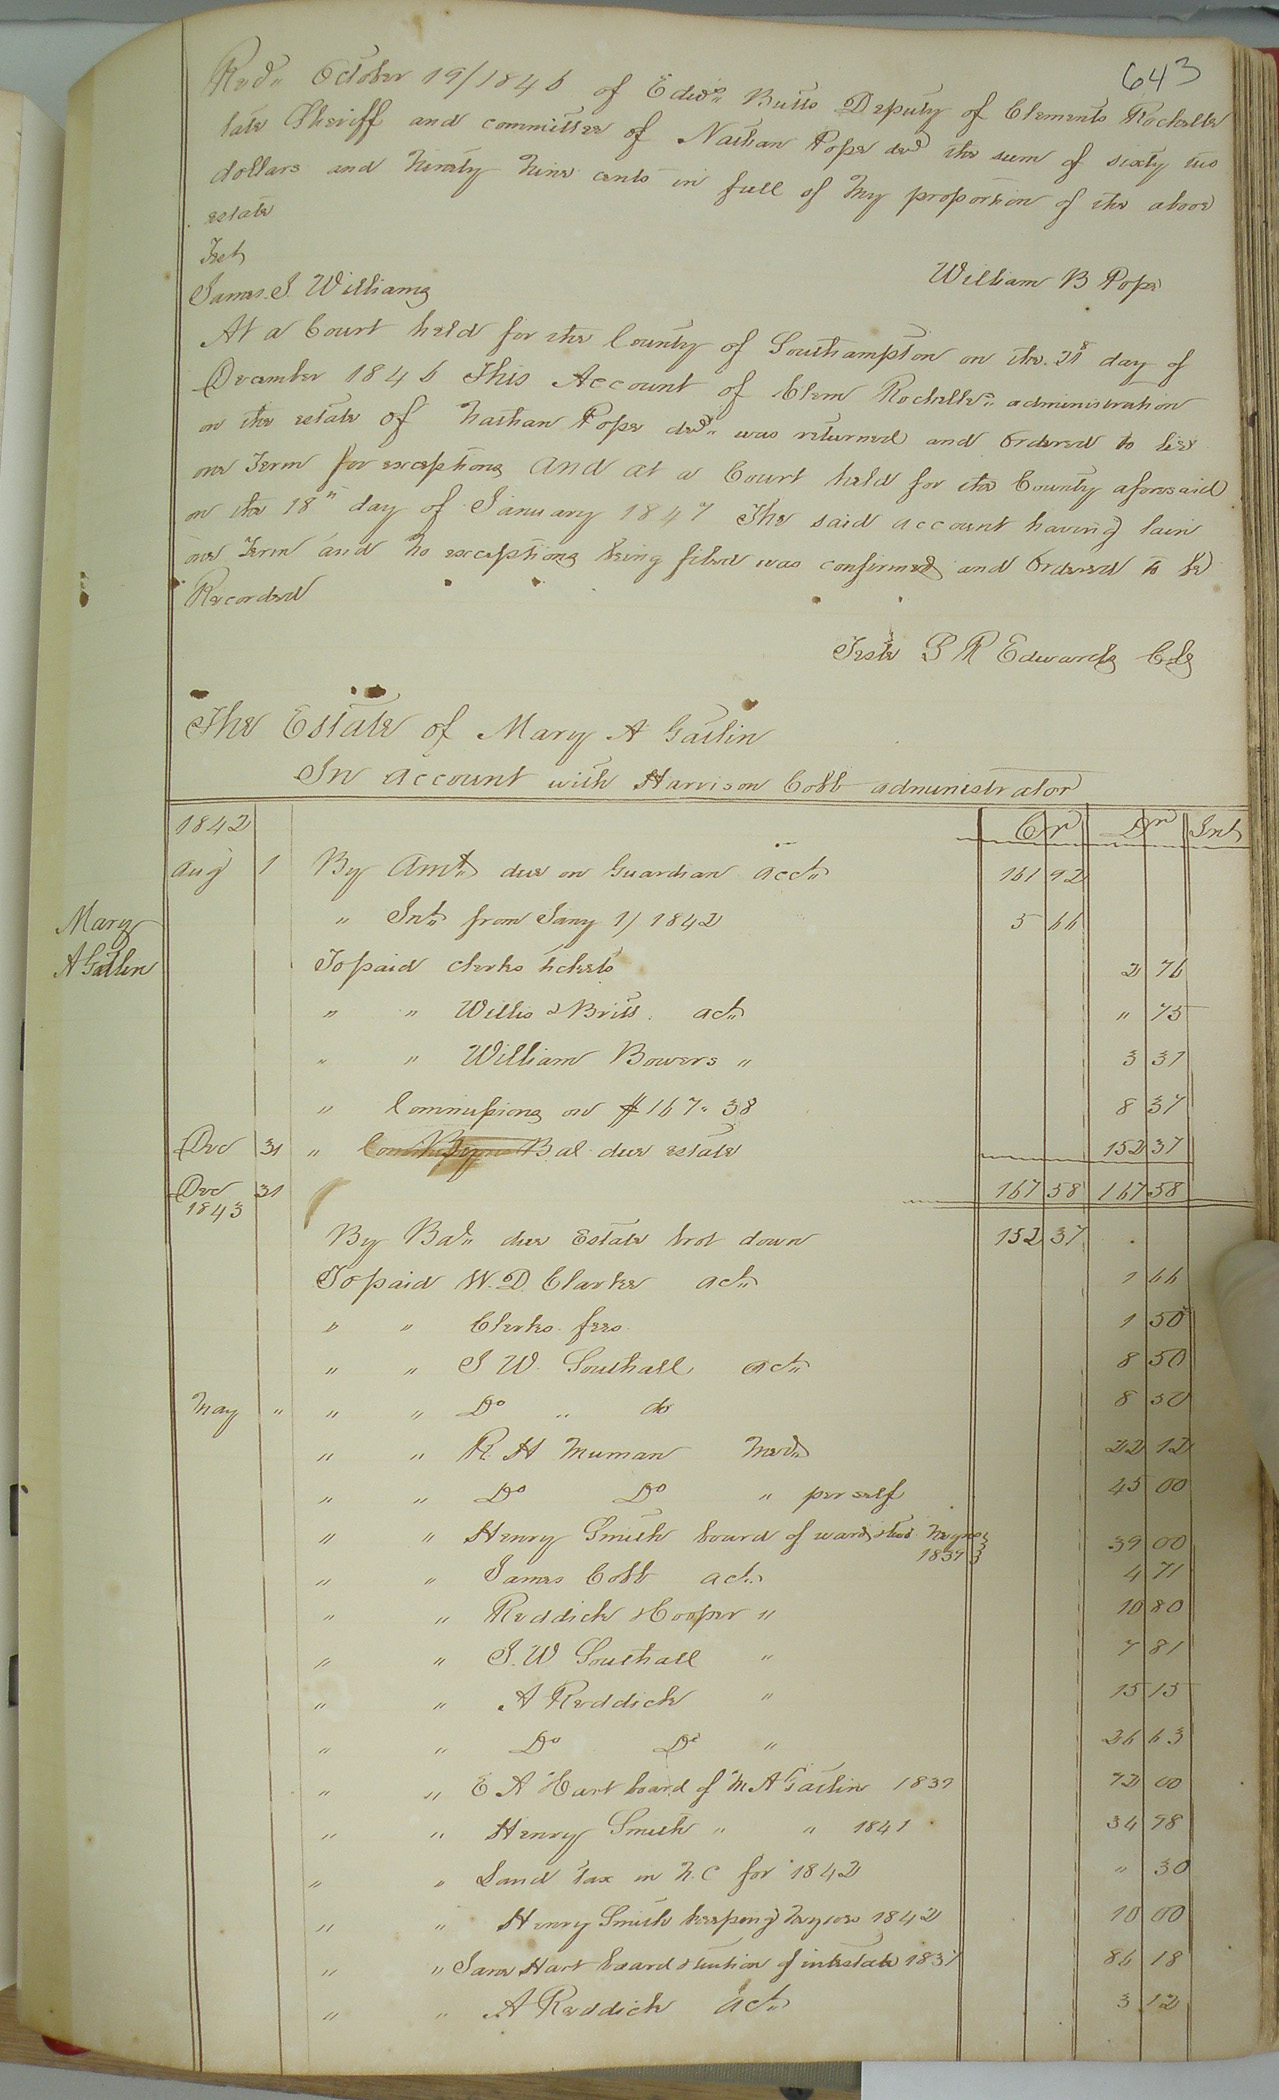 643
Recd. October 19/1846 of Edwd. Butts Deputy of Clements Rochelle
late Sheriff and committee of Nathan Pope decd the sum of sixty two
dollars and Ninety Nine cents in full of my proportion of the above
estate
Test
William B Pope
James J. Williams
At a Court held for the County of Southampton on the 21st day of
December 1846 This Account of Clem Rochelle administration
on the estate of Nathan Pope decd. was returned and Ordered to lie
one Term for exceptions and at a Court held for the County aforesaid
on the 18th day of January 1847 The said account having lain
one Term and no exceptions being filed was confirmed and Ordered to be
Recorded
Teste L R Edwards Clk
The Estate of Mary A Gatlin
In account with Harrison Cobb administrator
1842 Cr Dr Int
Aug 1 By Amt. due on Guardian acct. 161 92
" Int. from Jany 1/ 1842 5 66
Mary
A Gatlin
To paid clerks tickets 2 76
" " Willis & Britt. act. " 75
" " William Bowers " 3 37
" Commissions on $167.38 8 37
Dec 31 " Bal due estate 152 37
Dec 31 167 58 167 58
1843
By Bal. due Estate brot down 152 37
To paid W. D. Clarke act. 1 66
" " Clerks fees 1 50
" " J W. Southall act. 8 50
May " " " Do " do 8 50
" " R H Muman Med. 22 12
" " Do Do " per self 45 00
" " Henry Smith board of ward & two Negroes 1839 39 00
" " James Cobb act. 4 71
" " Reddick & Cooper " 10 80
" " J. W Southall " 7 81
" " A Reddick " 15 15
" " Do Do " 26 63
" " E A Hart board of M A Gatlin 1839 72 00
" " Henry Smith " " 1841 34 98
" " Land Tax in N. C for 1842 " 30
" " Henry Smith keeping Negroes 1842 10 00
" " Jane Hart board & tuition of intestate 1837 86 18
" " A Reddick act. 3 12